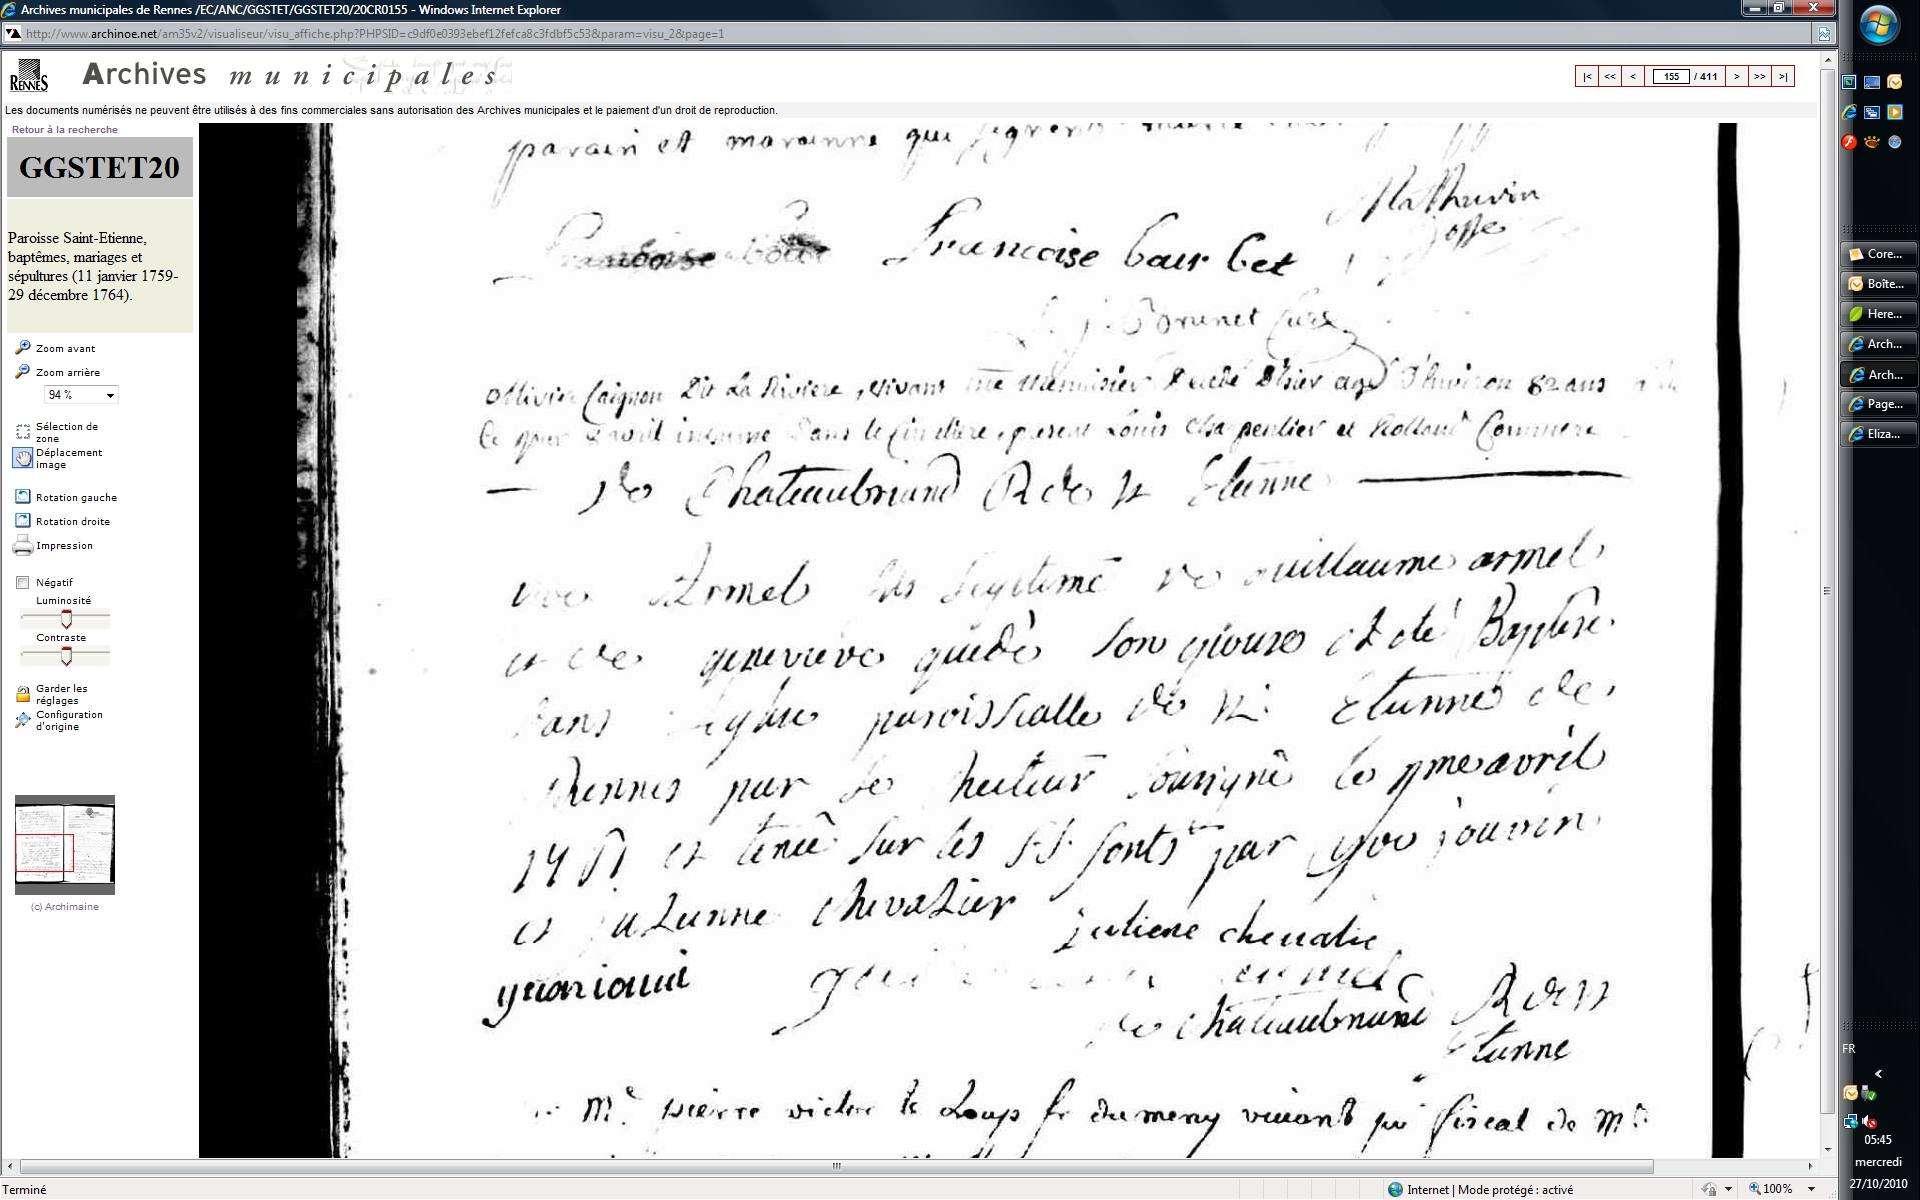 Archives municipales de Rennes /EC/ANC/GGSTET/GGSTET20/20CR0155 - Windows Internet Explorer
http://www.archinoe.net/am35v2/visualiseur/visu_affiche.php?PHPSID=c9df0e0393ebef12fefca8c3fdbf5c53&param=visu_2&page=1
RENNES
Archives municipales
|< << < 155 / 411 > >> >|
Les documents numérisés ne peuvent être utilisés à des fins commerciales sans autorisation des Archives municipales et le paiement d'un droit de reproduction.
Retour à la recherche
GGSTET20
Paroisse Saint-Etienne,
baptêmes, mariages et
sépultures (11 janvier 1759-
29 décembre 1764).
Zoom avant
Zoom arrière
94 %
Sélection de
zone
Déplacement
image
Rotation gauche
Rotation droite
Impression
Négatif
Luminosité
Contraste
Garder les
réglages
Configuration
d'origine
(c) Archimaine
parain et maranne qui
Mathurin
Josse
Francoise bour bet
Brunet Curé
Ollivier Caignon Dit La Riviere, vivant Menuisier decedé d'hier agé d'Environ 82 ans
le avril inhumé dans le Cimetiere, present Louis Charpentier et Rolland Commere
De Chateaubriand R de St Etienne
yve Armel fils legitime de Guillaume armel
et de genevieve guedé son epouse et eté Baptisé
dans leglise paroissialle de St Etienne de
Rennes par le Recteur sousigné le avril
et tenü sur les St fonts par yve jouvin
et suzanne chevalier
juliene chevalie
yvon iouin
armel
de chateaubriand R de St
Etienne
Mr. pierre victor le Loup sr dumeny vivant pr fiscal de Mr
Core...
Boîte...
Here...
Arch...
Arch...
Page...
Eliza...
FR
05:45
mercredi
27/10/2010
Terminé
Internet | Mode protégé : activé
100%